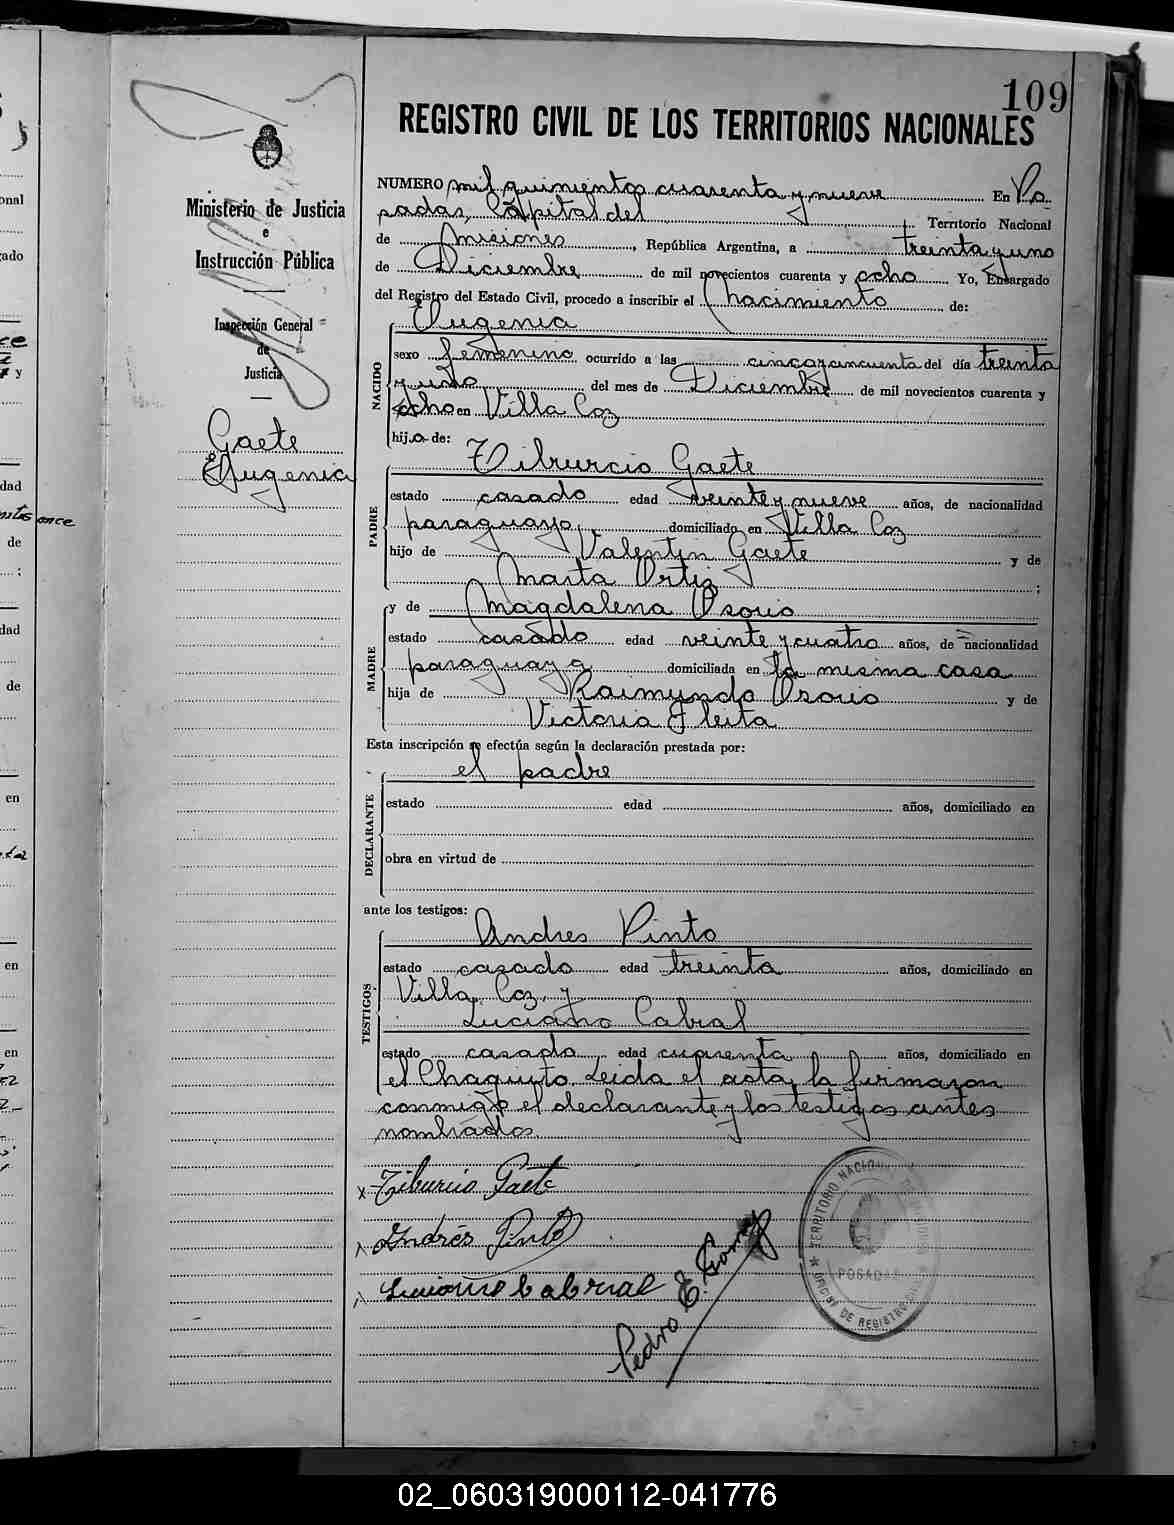 109
REGISTRO CIVIL DE LOS TERRITORIOS NACIONALES
Ministerio de Justicia
e
Instrucción Pública
Inspección General
de
Justicia
Gaete
Eugenia
NUMERO mil quinientos cuarenta y nueve En Po-
sadas, Capital del Territorio Nacional
de Misiones, República Argentina, a treinta y uno
de Diciembre de mil novecientos cuarenta y ocho Yo, Encargado
del Registro del Estado Civil, procedo a inscribir el Nacimiento de:
Eugenia
NACIDO
sexo femenino ocurrido a las cinco y cincuenta del día treinta
y uno del mes de Diciembre de mil novecientos cuarenta y
ocho en Villa Coz
hija de:
Tiburcio Gaete
PADRE
estado casado edad veinte y nueve años, de nacionalidad
paraguayo, domiciliado en Villa Coz
hijo de Valentin Gaete y de
Marta Ortiz ;
y de Magdalena Osorio
MADRE
estado casado edad veinte y cuatro años, de nacionalidad
paraguaya domiciliada en la misma casa
hija de Raimundo Osorio y de
Victoria Fleita
Esta inscripción se efectúa según la declaración prestada por:
el padre
DECLARANTE
estado edad años, domiciliado en
obra en virtud de
ante los testigos:
Andres Pinto
TESTIGOS
estado casado edad treinta años, domiciliado en
Villa Coz y
Luciano Cabral
estado casado edad cuarenta años, domiciliado en
el Chaquito. Leida el acta, la firmaron
conmigo el declarante y los testigos antes
nombrados.
Tiburcio Gaete
Andrés Pinto
Luciano Cabral
Pedro E.
TERRITORIO NACIONAL DE MISIONES
POSADAS
02_060319000112-041776